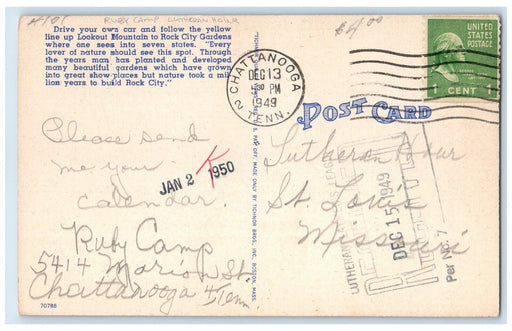 RUBY CAMP LUTHERAN HOUR
$4.00
Drive your own car and follow the yellow
line up Lookout Mountain to Rock City Gardens
where one sees into seven states. "Every
lover of nature should see this spot. Through
the years man has planted and developed
many beautiful gardens which have grown
into great show places but nature took a mil-
lion years to build Rock City."
Please send
me your
calendar.
Ruby Camp
5414 Marion St
Chattanooga 4 Tenn.
70788
JAN 2 1950
MADE ONLY BY TICHNOR BROS., INC., BOSTON, MASS.
CHATTANOOGA
DEC 13
PM
1949
2 TENN.
UNITED
STATES
POSTAGE
1 CENT 1
POST CARD
Lutheran Hour
St. Louis
Missouri
LUTHERAN LAYMEN'S LEAGUE
DEC 15 1949
Per NO. 7